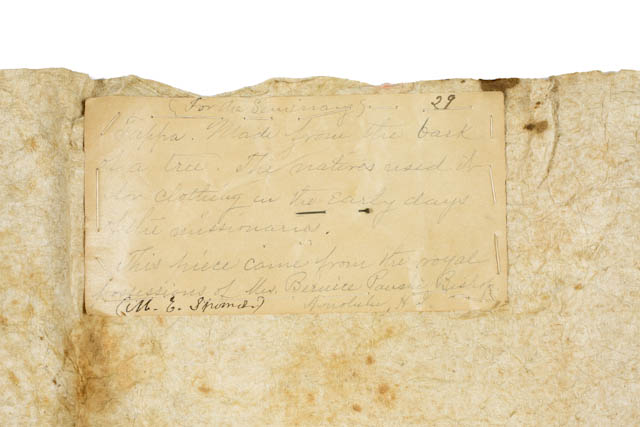 (For the Seminary). 29
Tappa. Made from the bark
of a tree. The natives used it
for clothing in the early days
of the missionaries.
This piece came from the royal
possessions of Mrs. Bernice Pauahi Bishop
(M. E. ) Honolulu, H. I.